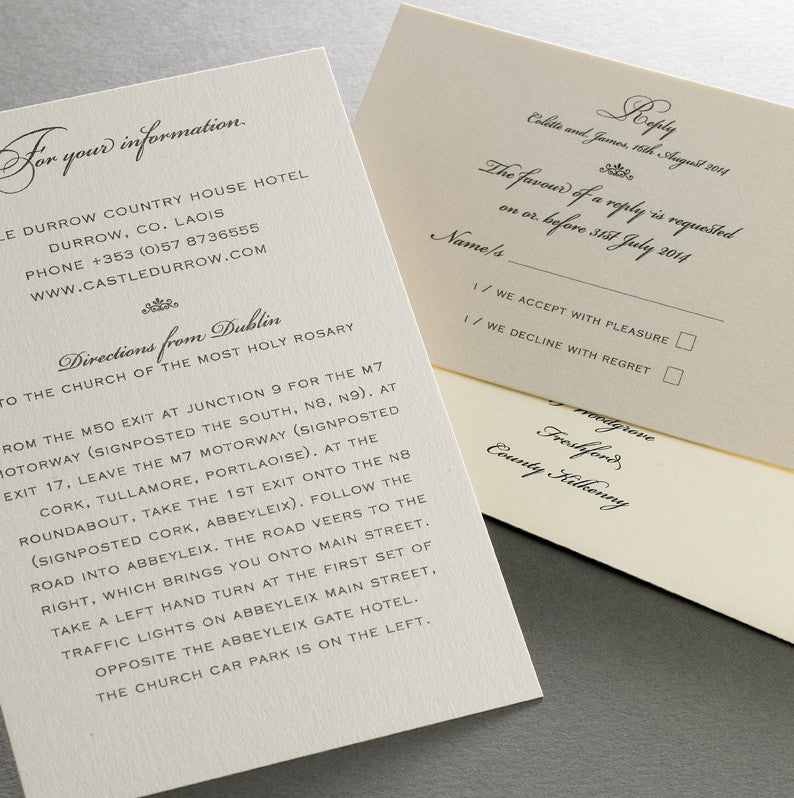 For your information
LE DURROW COUNTRY HOUSE HOTEL
DURROW, CO. LAOIS
PHONE +353 (0)57 8736555
WWW.CASTLEDURROW.COM
Directions from Dublin
TO THE CHURCH OF THE MOST HOLY ROSARY
ROM THE M50 EXIT AT JUNCTION 9 FOR THE M7
MOTORWAY (SIGNPOSTED THE SOUTH, N8, N9). AT
EXIT 17, LEAVE THE M7 MOTORWAY (SIGNPOSTED
CORK, TULLAMORE, PORTLAOISE). AT THE
ROUNDABOUT, TAKE THE 1ST EXIT ONTO THE N8
(SIGNPOSTED CORK, ABBEYLEIX). FOLLOW THE
ROAD INTO ABBEYLEIX. THE ROAD VEERS TO THE
RIGHT, WHICH BRINGS YOU ONTO MAIN STREET.
TAKE A LEFT HAND TURN AT THE FIRST SET OF
TRAFFIC LIGHTS ON ABBEYLEIX MAIN STREET,
OPPOSITE THE ABBEYLEIX GATE HOTEL.
THE CHURCH CAR PARK IS ON THE LEFT.
Reply
Colette and James, 16th August 2014
The favour of a reply is requested
on or before 31st July 2014
Name/s
I / WE ACCEPT WITH PLEASURE
I / WE DECLINE WITH REGRET
Woodgrove
Freshford
County Kilkenny